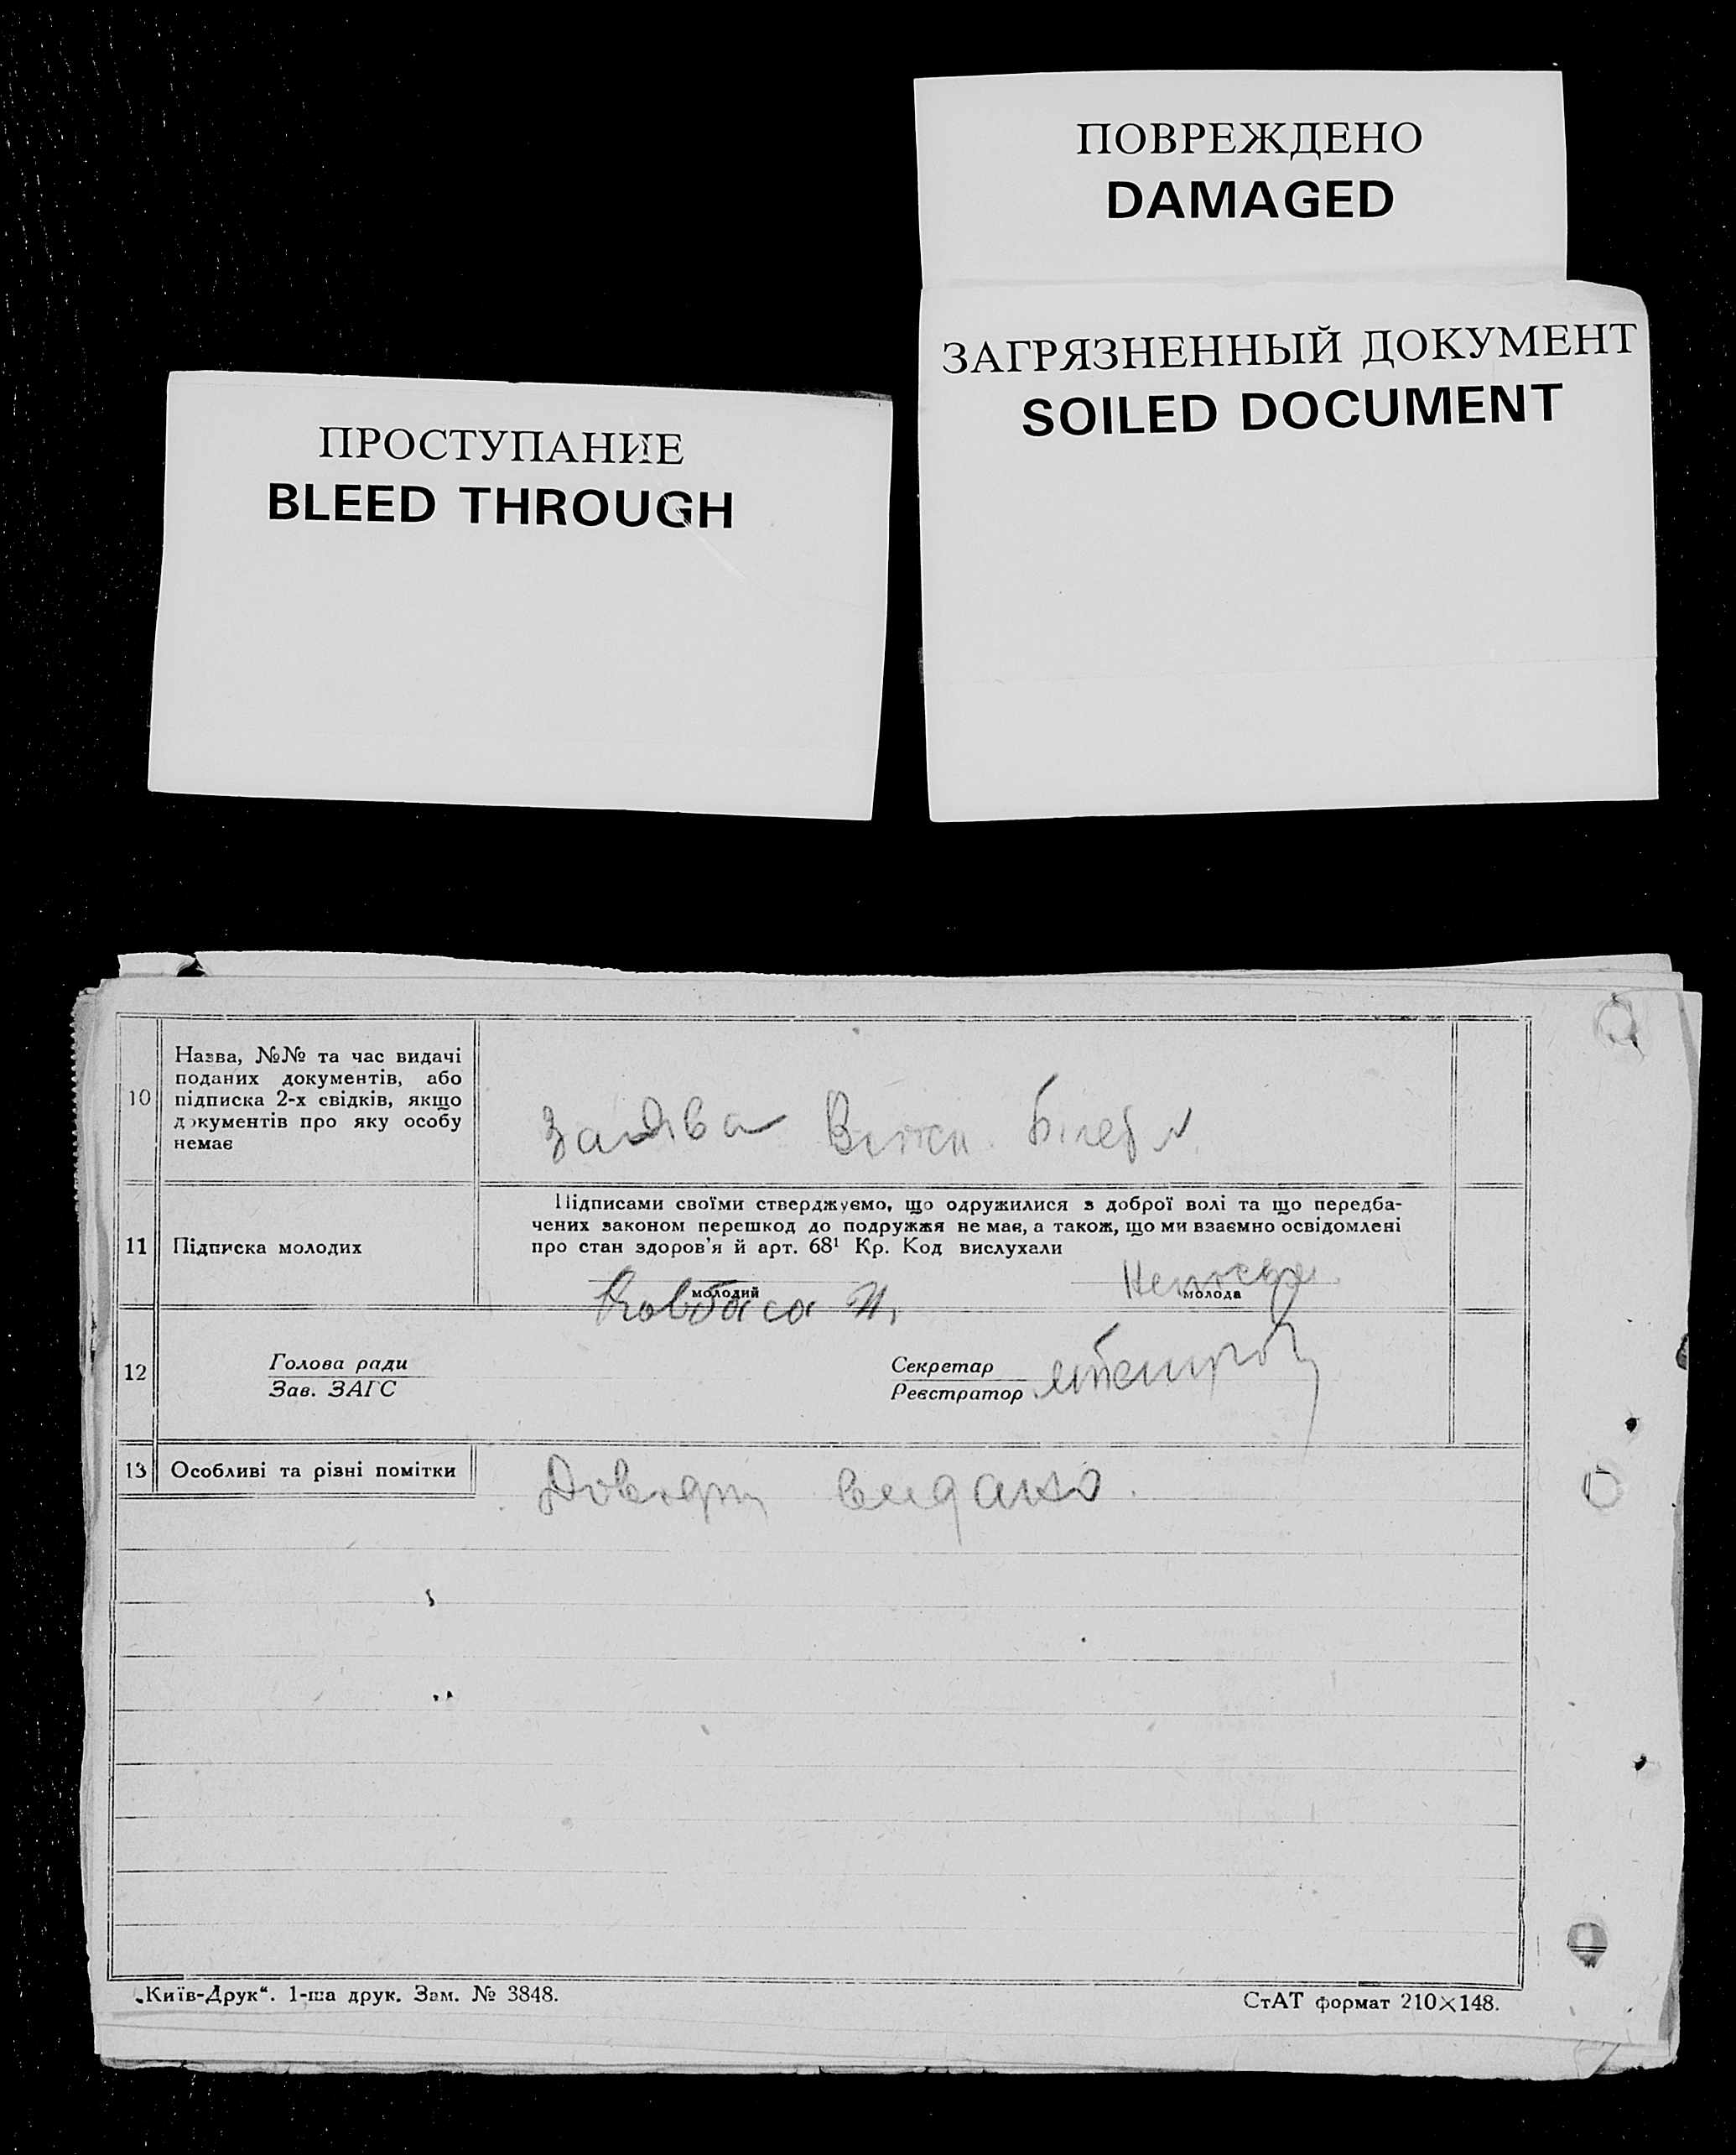 ПОВРЕЖДЕНО
DAMAGED
ЗАГРЯЗНЕННЫЙ ДОКУМЕНТ
SOILED DOCUMENT
ПРОСТУПАНИЕ
BLEED THROUGH
10
Назва, №№ та час видачі
поданих документів, або
підписка 2-х свідків, якщо
документів про яку особу
немає
Заява Білет
11
Підписка молодих
Підписами своїми стверджуємо, що одружилися з доброї волі та що передба-
чених законом перешкод до подружжя не має, а також, що ми взаємно освідомлені
про стан здоров'я й арт. 68¹ Кр. Код вислухали
молодий
Ковбаса
молода
12
Голова ради
Зав. ЗАГС
Секретар
Реєстратор
13
Особливі та різні помітки
видано.
„Київ-Друк“. 1-ша друк. Зам. № 3848.
СтАТ формат 210×148.